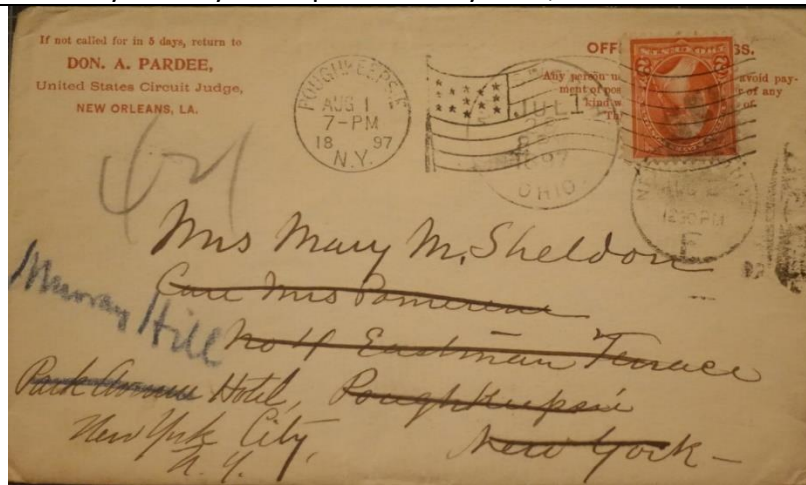 If not called for in 5 days, return to
DON. A. PARDEE,
United States Circuit Judge,
NEW ORLEANS, LA.
POUGHKEEPSIE
AUG 1
7-PM
18 97
N.Y.
JUL
1897
OHIO
OFF SS.
Any person avoid pay-
ment of of any
kind of.
2 2
12 30 PM
F
Mrs Mary M. Sheldon
Care Mrs Pomerene
No 4 Eastman Terrace
Murray Hill
Park Avenue Hotel, Poughkeepsie
New York City, New York
N.Y.